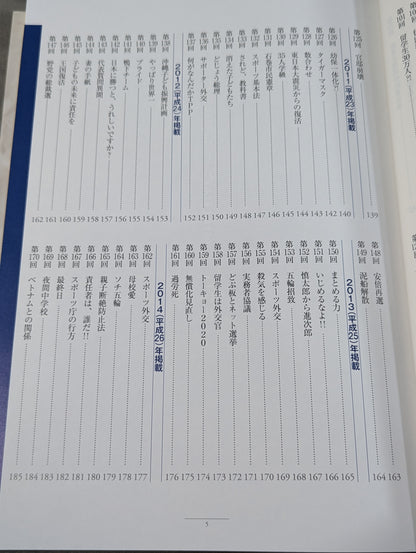 第101回
留学生30万人
第125回 官邸崩壊 139
2011(平成23)年掲載
第126回 幼保一体化?! 140
第127回 タイガーマスク 142
第128回 数合わせ 143
第129回 東日本大震災からの復活 144
第130回 35人学級 145
第131回 石巻市民憲章 146
第132回 スポーツ基本法 147
第133回 されど、教科書 148
第134回 消えた子どもたち 149
第135回 どじょう総理 150
第136回 サポーター外交 151
第137回 何がなんだかTPP 152
2012(平成24)年掲載
第138回 沖縄子ども振興計画 153
第139回 やっぱり世界一 154
第140回 プライド 155
第141回 鴨とドーム 156
第142回 日本に勝つと、うれしいですか? 157
第143回 代表質問異聞 158
第144回 妻の手紙 159
第145回 子どもの未来に責任を 160
第146回 王国復活 161
第147回 野党の総裁選 162
第148回 安倍再選 163
第149回 泥船解散 164
2013(平成25)年掲載
第150回 まとめる力 165
第151回 いじめるなよ!! 166
第152回 慎太郎から進次郎 167
第153回 五輪招致 168
第154回 スポーツ外交 169
第155回 殺気を感じる 170
第156回 実務者協議 171
第157回 どぶ板とネット選挙 172
第158回 留学生は外交官 173
第159回 トーキョー2020 174
第160回 無償化見直し 175
第161回 過労死 176
2014(平成26)年掲載
第162回 スポーツ外交 177
第163回 母校愛 178
第164回 ソチ五輪 179
第165回 親子断絶防止法 180
第166回 責任者は、誰だ!! 181
第167回 スポーツ庁の行方 182
第168回 最終日 183
第169回 夜間中学校 184
第170回 ベトナムとの関係 185
5